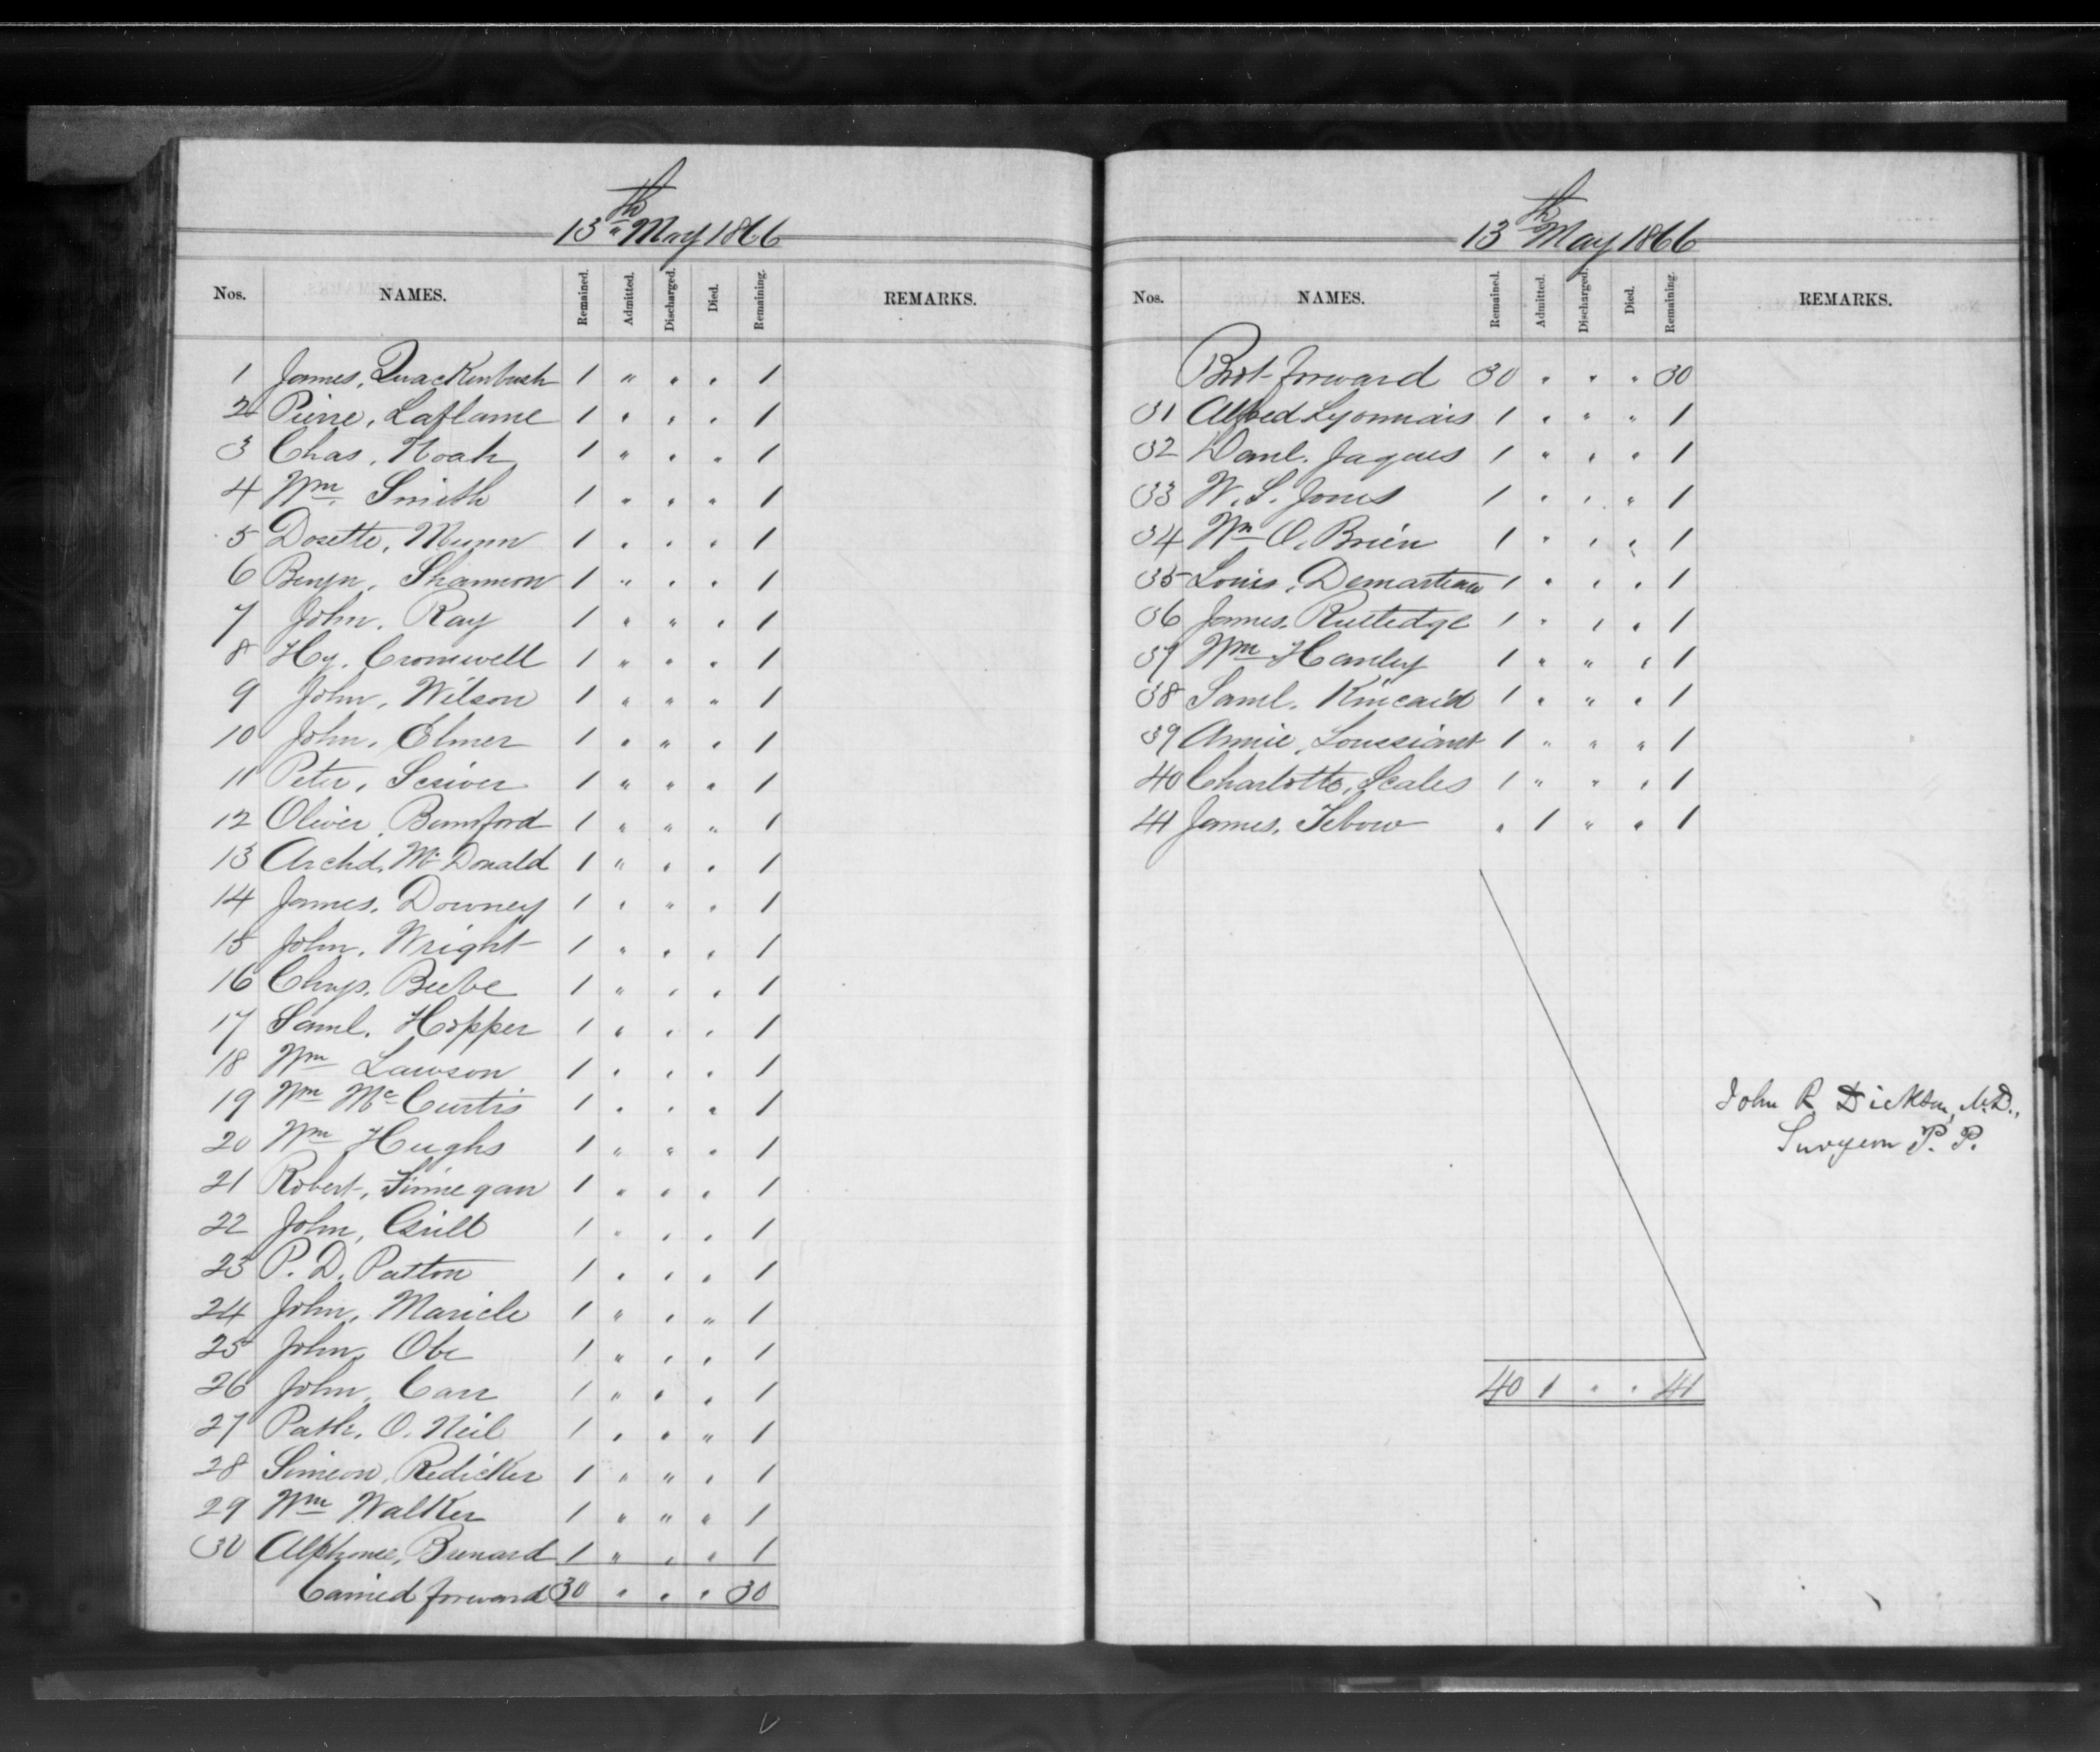 13th May 1866
Nos. NAMES. Remained. Admitted. Discharged. Died. Remaining. REMARKS.
1 James, Quackenbush 1 " " " 1
2 Pierre, Laflame 1 " " " 1
3 Chas, Noah 1 " " " 1
4 Wm Smith 1 " " " 1
5 Dosette, Munn 1 " " " 1
6 Benjn, Shannon 1 " " " 1
7 John, Ray 1 " " " 1
8 Hy. Cromwell 1 " " " 1
9 John, Wilson 1 " " " 1
10 John, Elmer 1 " " " 1
11 Peter, Scriver 1 " " " 1
12 Oliver, Bumford 1 " " " 1
13 Archd, Mc Donald 1 " " " 1
14 James, Downey 1 " " " 1
15 John, Wright 1 " " " 1
16 Beebe 1 " " " 1
17 Saml. Hopper 1 " " " 1
18 Wm Lawson 1 " " " 1
19 Wm Mc Curtis 1 " " " 1
20 Wm Hughs 1 " " " 1
21 Robert, Finnegan 1 " " " 1
22 John, 1 " " " 1
23 P. D. Patton 1 " " " 1
24 John, Maricle 1 " " " 1
25 John, Obe 1 " " " 1
26 John, Carr 1 " " " 1
27 Patk. O. Neil 1 " " " 1
28 Simeon, Redicker 1 " " " 1
29 Wm Walker 1 " " " 1
30 Alphonse, Brenard 1 " " " 1
Carried forward 30 " " " 30
13th May 1866
Nos. NAMES. Remained. Admitted. Discharged. Died. Remaining. REMARKS.
Brot forward 30 " " " 30
31 Alfred Lyonnais 1 " " " 1
32 Danl. Jaques 1 " " " 1
33 W. S. Jones 1 " " " 1
34 Wm O. Brien 1 " " " 1
35 Louis, Demarteau 1 " " " 1
36 James, Rutledge 1 " " " 1
37 Wm Hanley 1 " " " 1
38 Saml. Kincaid 1 " " " 1
39 Annie, 1 " " " 1
40 Charlotte, Scales 1 " " " 1
41 James, Tebow " 1 " " 1
John R Dickson, M.D.,
Surgeon P. P.
40 1 " " 41